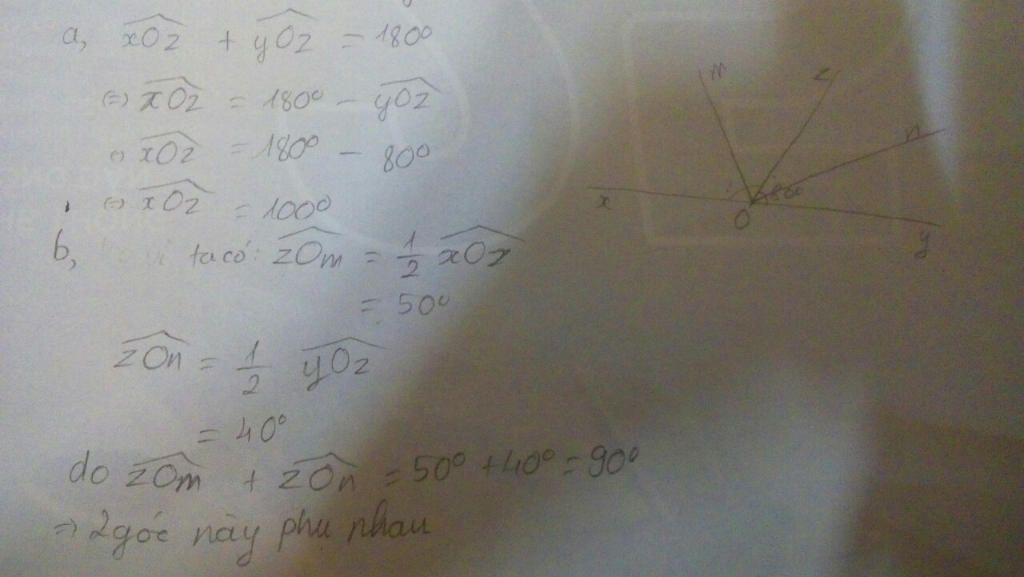 a, xOz + yOz = 180°
(=) xOz = 180° - yOz
(=) xOz = 180° - 80°
(=) xOz = 100°
b, ta có: zOm = 1/2 xOz
= 50°
zOn = 1/2 yOz
= 40°
do zOm + zOn = 50° + 40° = 90°
=> 2 góc này phụ nhau
m z
n
x O 80° y